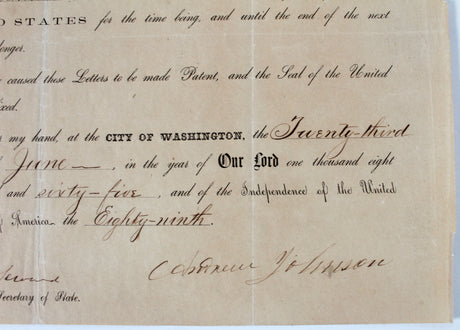 STATES for the time being, and until the end of the next
longer.
caused these Letters to be made Patent, and the Seal of the United
my hand, at the CITY OF WASHINGTON, the Twenty-third
June, in the year of Our Lord one thousand eight
and sixty-five, and of the Independence of the United
of America the Eighty-ninth.
Andrew Johnson
Secretary of State.